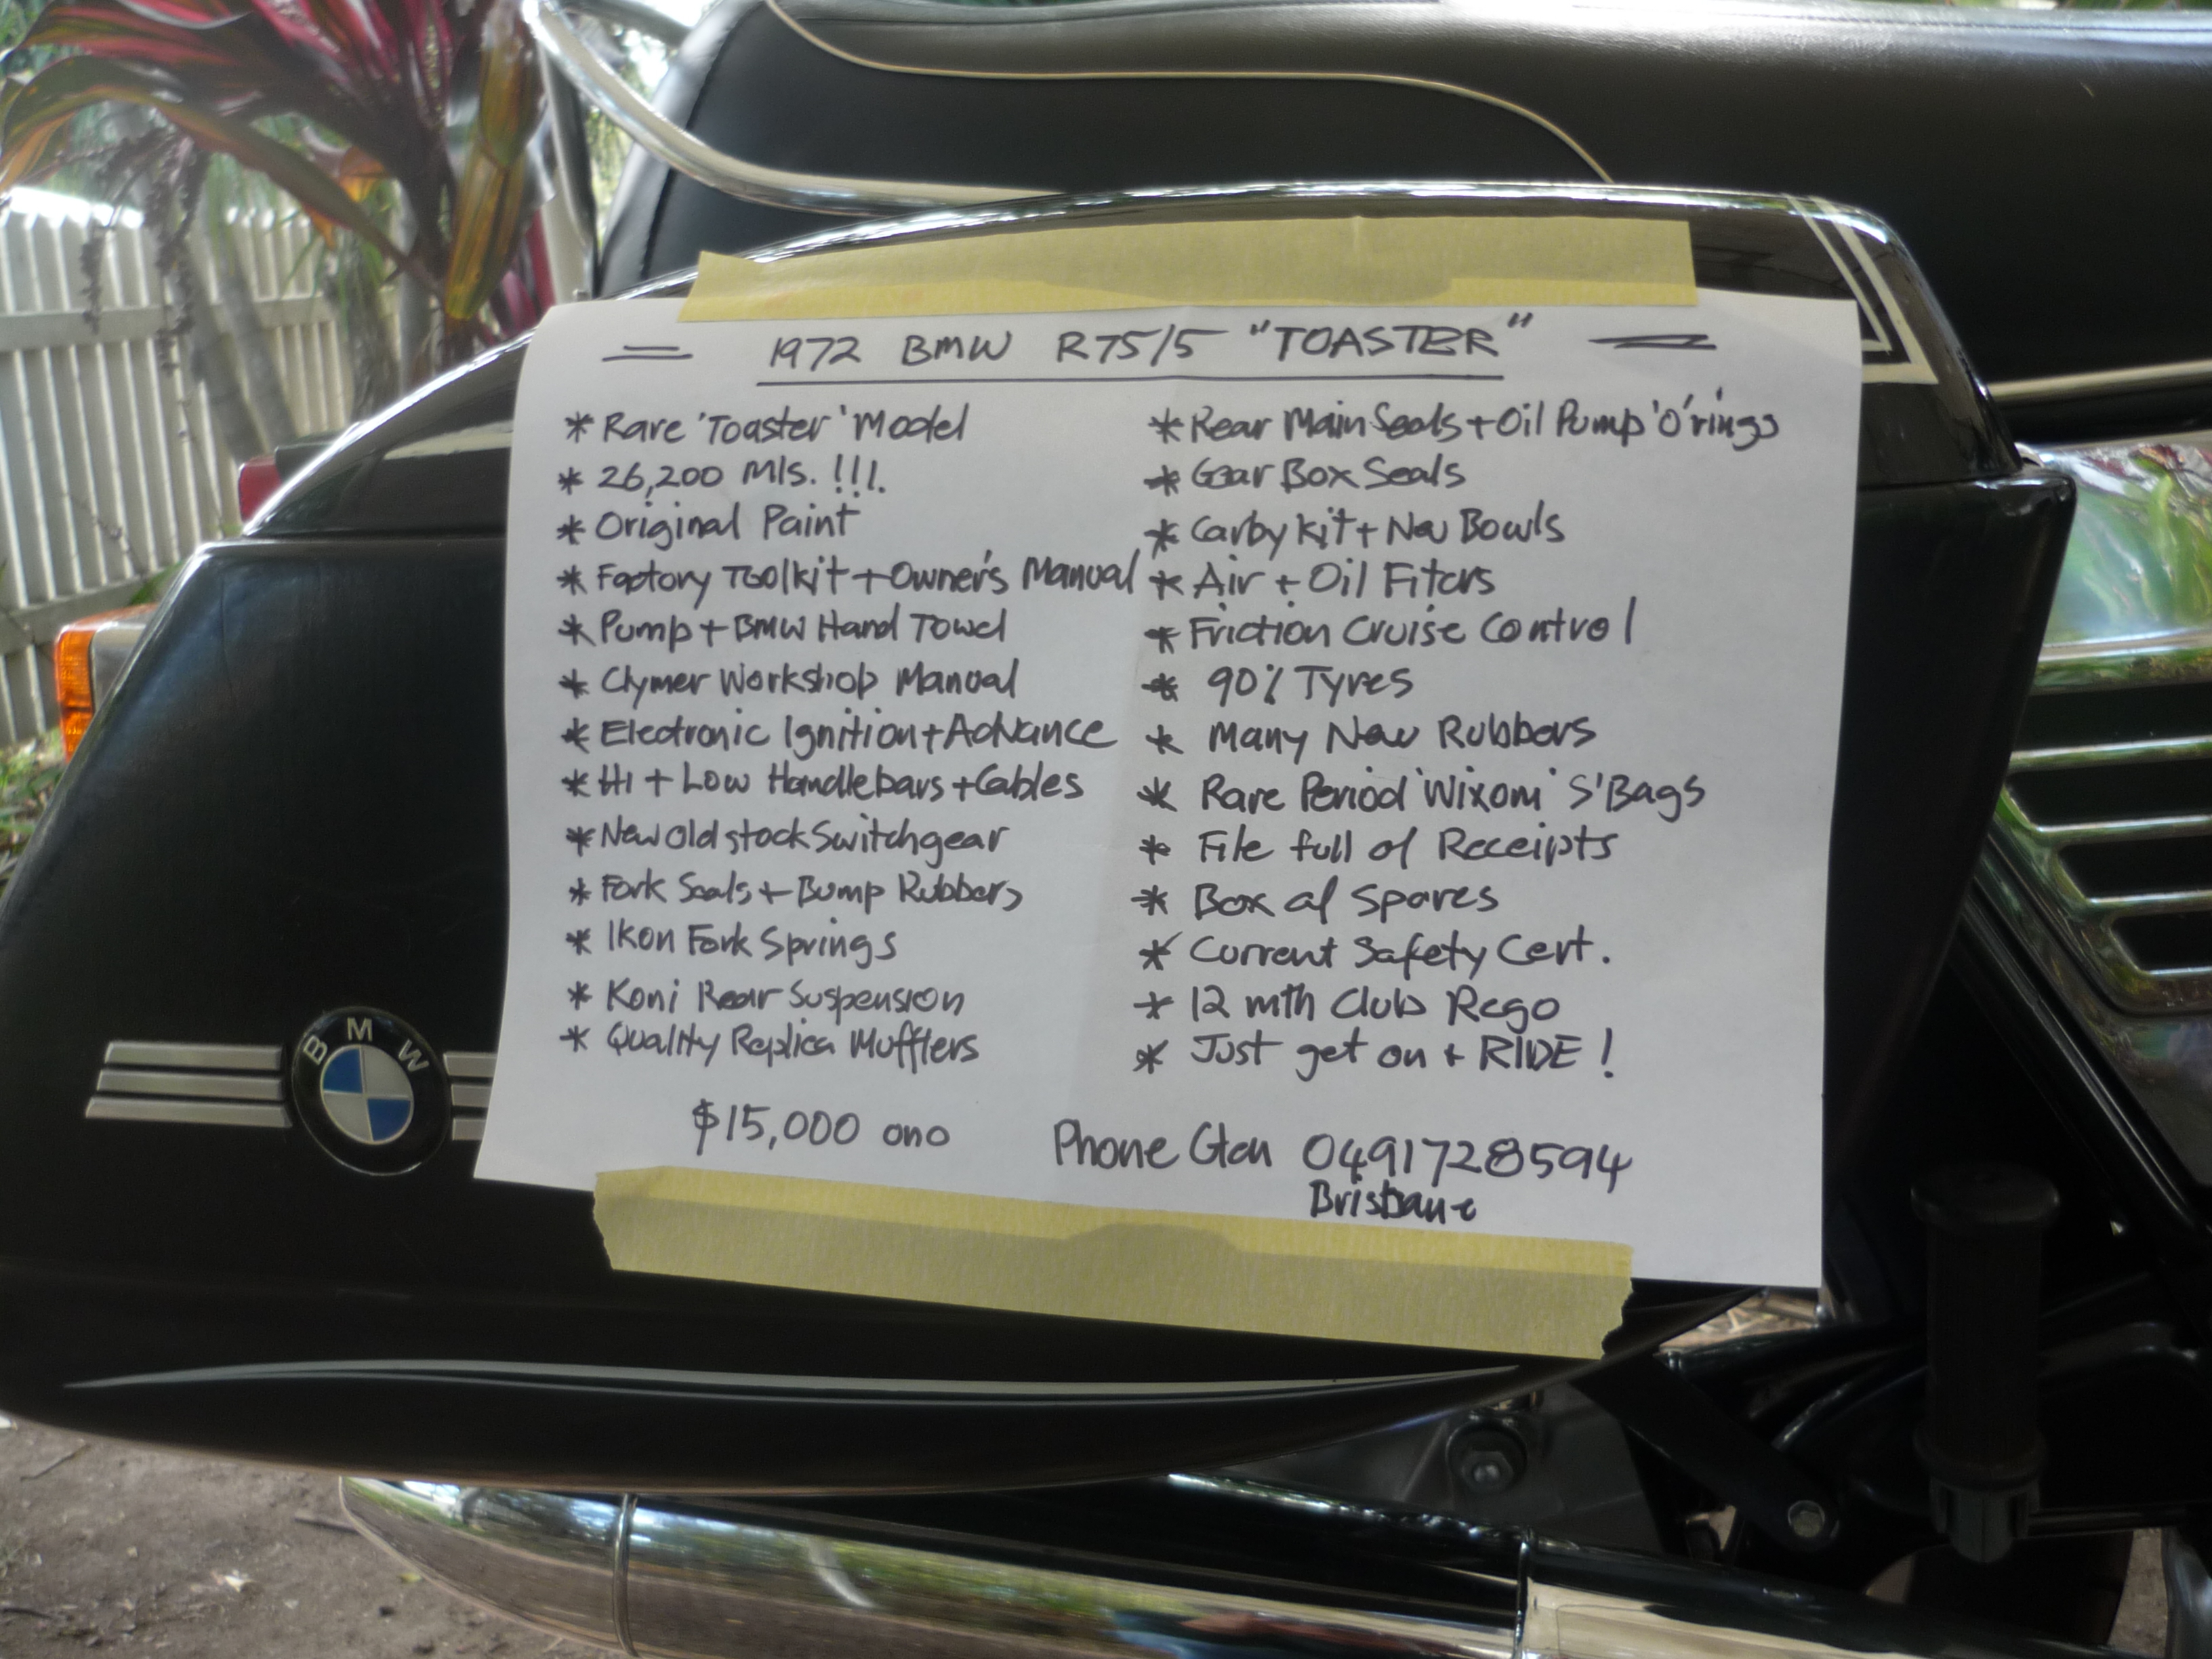 1972 BMW R75/5 "TOASTER"
* Rare 'Toaster' Model
* 26,200 Mls. !!!.
* Original Paint
* Factory Toolkit + Owner's Manual
* Pump + BMW Hand Towel
* Clymer Workshop Manual
* Electronic Ignition + Advance
* Hi + Low Handlebars + Cables
* New old stock Switchgear
* Fork Seals + Bump Rubbers
* Ikon Fork Springs
* Koni Rear Suspension
* Quality Replica Mufflers
* Rear Main Seals + Oil Pump 'O' rings
* Gear Box Seals
* Carby kit + New Bowls
* Air + Oil Fiters
* Friction Cruise Control
* 90% Tyres
* Many New Rubbers
* Rare Period 'Wixom' S'Bags
* File full of Receipts
* Box of Spares
* Current Safety Cert.
* 12 mth Club Rego
* Just get on + RIDE!
$15,000 ono
Phone Glen 0491728594
Brisbane
BMW